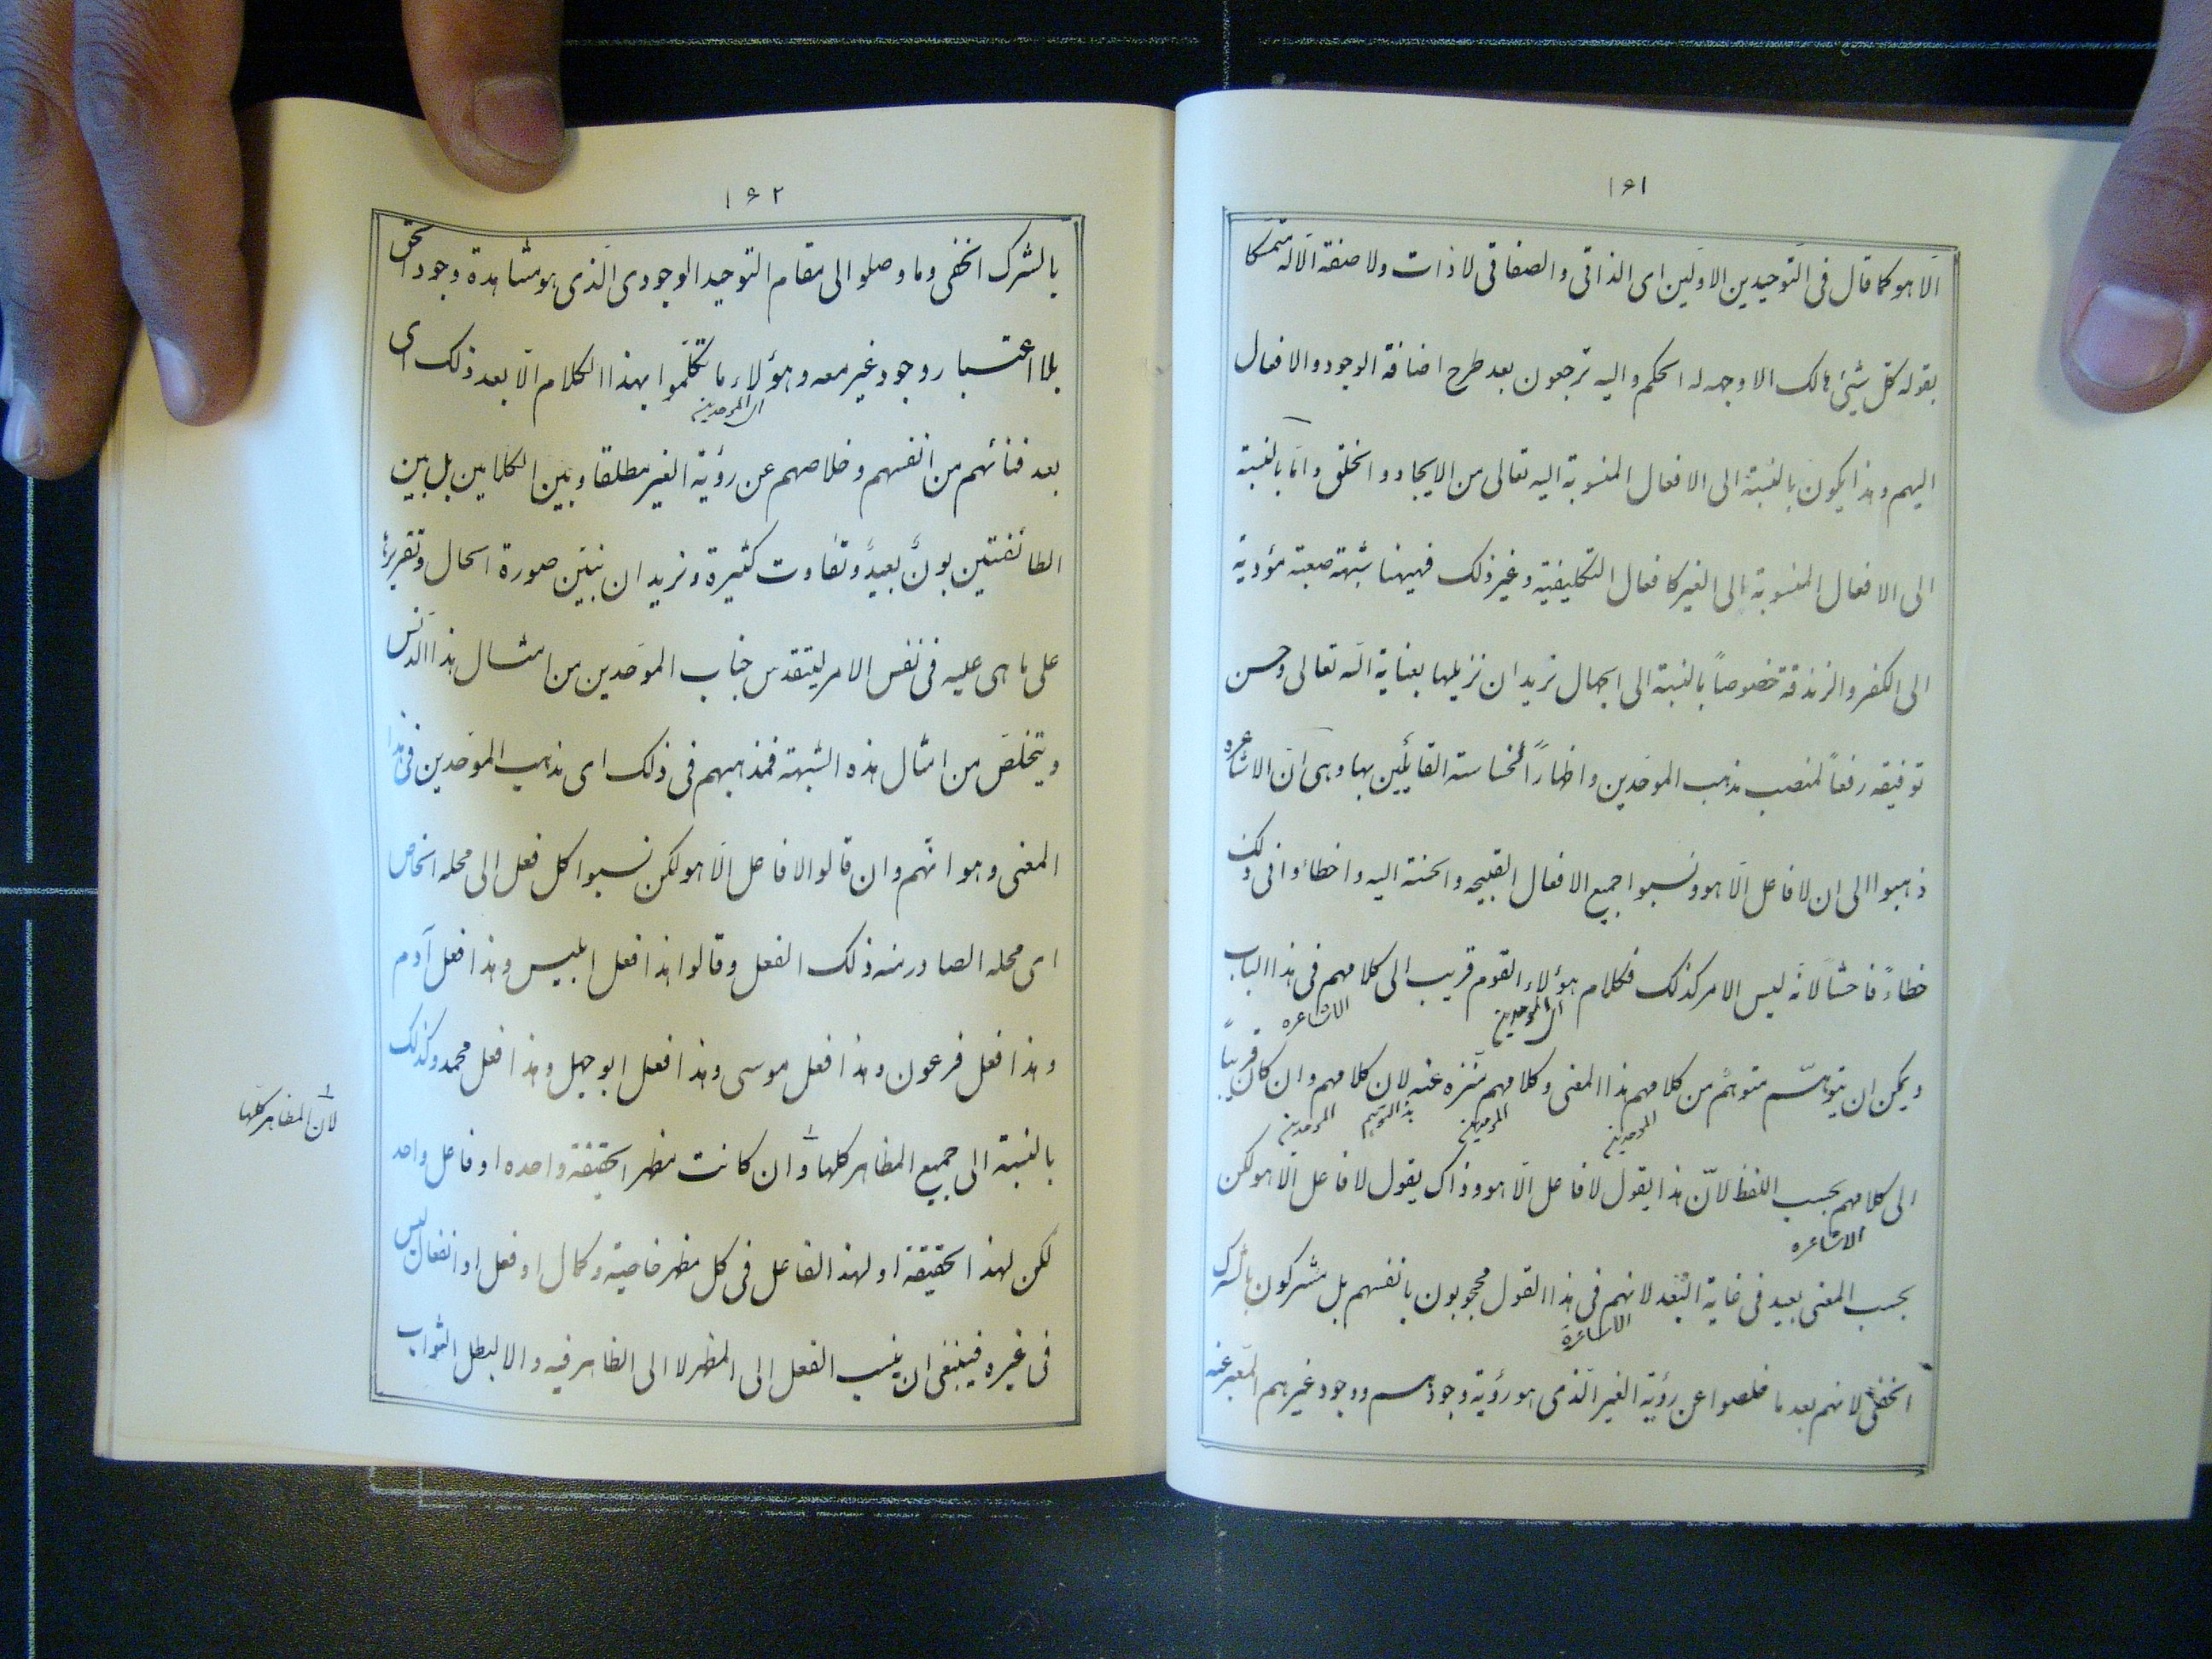 ۱۶۱
الّا هو كما قال فى التّوحيدين الاولين اى الذاتى والصفاتى لا ذات ولا صفة الّا له متمسّكا
بقوله كلّ شيئ هالك الا وجهه له الحكم واليه ترجعون بعد طرح اضافة الوجود والافعال
اليهم وهذا يكون بالنسبة الى الافعال المنسوبة اليه تعالى من الايجاد والخلق وامّا بالنسبة
الى الافعال المنسوبة الى الغير كافعال التكليفية وغير ذلك فهيهنا شبهة صعبة مؤدية
الى الكفر والزندقة خصوصاً بالنسبة الى الجهال نريد ان نزيلها بعناية الله تعالى وحسن
توفيقه رفعاً لمنصب مذهب الموحّدين واظهاراً لخساسة القائلين بها وهى انّ الاشاعره
ذهبوا الى ان لا فاعل الّا هو ونسبوا جميع الافعال القبيحه والحسنة اليه واخطاؤا فى ذلك
خطاءً فاحشاً لانّه ليس الامر كذلك فكلام هؤلاء القوم قريب الى كلامهم فى هذا الباب
اى الموحدين
الاشاعره
ويمكن ان يتوهّم متوهّم من كلامهم هذا المعنى وكلامهم منزه عنه لان كلامهم وان كان قريباً
الموحدين
الموحدين
هذا التوهم
الموحدين
الى كلامهم بحسب اللفظ لانّ هذا يقول لا فاعل الّا هو وذاك يقول لا فاعل الّا هو لكن
الاشاعره
بحسب المعنى بعيد فى غاية البُعد لانهم فى هذا القول محجوبون بانفسهم بل مشركون بالشرك
الاشاعرة
الخفىّ لانهم بعد ما خلصوا عن رؤية الغير الّذى هو رؤية وجودهم ووجود غيرهم المعّبر عنه
۱۶۲
بالشرك الخفى وما وصلوا الى مقام التوحيد الوجودى الّذى هو مشاهدة وجود الحق
بلا اعتبار وجود غير معه وهؤلاء ما تكلّموا بهذا الكلام الّا بعد ذلك اى
اى الموحدين
بعد فنائهم من انفسهم وخلاصهم عن رؤية الغير مطلقا وبين الكلامين بل بين
الطائفتين بونٌ بعيدٌ وتفاوت كثيرة ونريد ان نبيّن صورة الحال وتقريرها
على ما هى عليه فى نفس الامر ليتقدس جناب الموّحدين من امثال هذا الدنس
ويتخلّص من امثال هذه الشبهة فمذهبهم فى ذلك اى مذهب الموحّدين فى هذا
المعنى وهو انّهم وان قالوا لا فاعل الّا هو لكن نسبوا كل فعل الى محله الخاص
اى محله الصادر منه ذلك الفعل وقالوا هذا فعل ابليس وهذا فعل آدم
وهذا فعل فرعون وهذا فعل موسى وهذا فعل ابوجهل وهذا فعل محمد وكذلك
بالنسبة الى جميع المظاهر كلها وان كانت مظهر الحقيقة واحده او فاعل واحد
لانّ المظاهر كلّها
لكن لهذا الحقيقة او لهذا الفاعل فى كل مظهر خاصية وكمال او فعل او انفعال ليس
فى غيره فينبغى ان ينسب الفعل الى المظهر لا الى الظاهر فيه والا لبطل الثواب